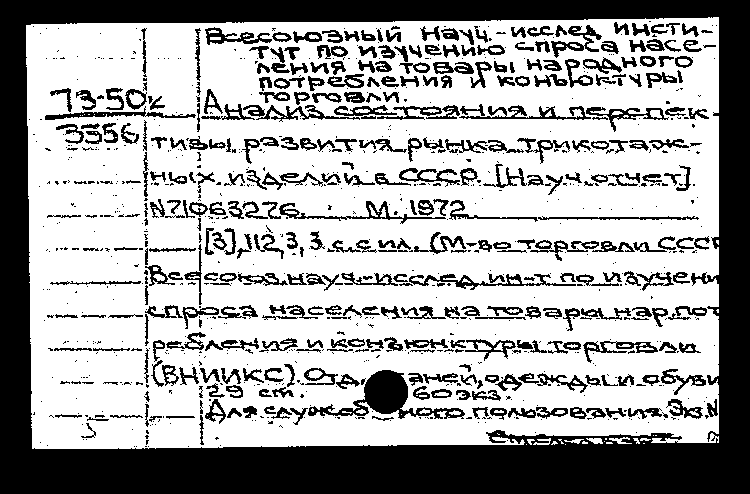 Всесоюзный науч.-исслед. инсти-
тут по изучению спроса насе-
ления на товары народного
потребления и конъюктуры
торговли.
73-50к
3556
Анализ состояния и перспек-
тивы развития рынка трикотаж-
ных изделий в СССР. [Науч. отчет]
N71063276. М., 1972
[3], 112, 3, 3 с. с ил. (М-во торговли СССР
Всесоюз. науч.-исслед. ин-т по изучени
спроса населения на товары нар. пот
ребления и конъюнктуры торговли
(ВНИИКС). Отд. каней, одежды и обуви
29 см. 60 экз.
Для служебного пользования. Экз. N
5